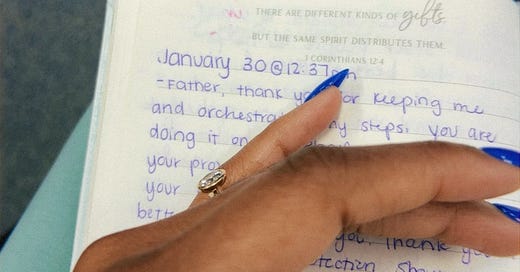 THERE ARE DIFFERENT KINDS OF gifts
BUT THE SAME SPIRIT DISTRIBUTES THEM.
1 CORINTHIANS 12:4
January 30 @ 12:37
-Father, thank for keeping me
and my steps. You are
doing it on
your
your
you, thank you